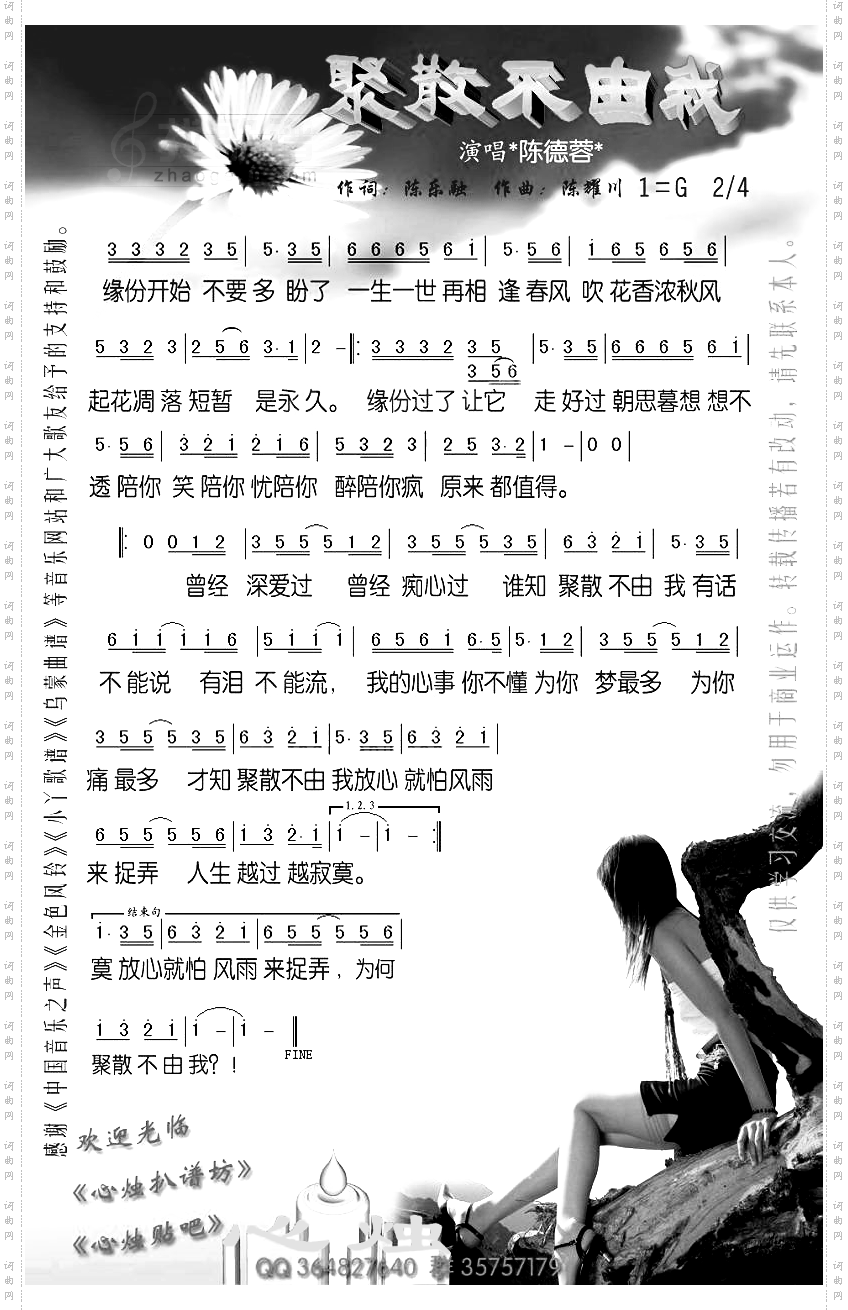 聚散不由我
演唱*陈德蓉*
作词：陈乐融 作曲：陈耀川 1=G 2/4
3 3 3 2 3 5 | 5· 3 5 | 6 6 6 5 6 i | 5· 5 6 | i 6 5 6 5 6 |
缘份开始 不要多 盼了 一生一世再相 逢春风 吹花香浓秋风
5 3 2 3 | 2 5 6 3· 1 | 2 － ‖: 3 3 3 2 3 5 | 5· 3 5 | 6 6 6 5 6 i |
3 5 6
起花凋落短暂 是永久。 缘份过了让它 走好过朝思暮想 想不
5· 5 6 | 3 2 i 2 i 6 | 5 3 2 3 | 2 5 3· 2 | 1 － | 0 0 |
透陪你 笑陪你忧陪你 醉陪你疯 原来都值得。
‖: 0 0 1 2 | 3 5 5 5 1 2 | 3 5 5 5 3 5 | 6 3 2 i | 5· 3 5 |
曾经 深爱过 曾经 痴心过 谁知 聚散不由我有话
6 i i i i 6 | 5 i i i | 6 5 6 i 6· 5 | 5· 1 2 | 3 5 5 5 1 2 |
不能说 有泪不能流， 我的心事你不懂为你 梦最多 为你
3 5 5 5 3 5 | 6 3 2 i | 5· 3 5 | 6 3 2 i |
痛最多 才知聚散不由我放心就怕风雨
1.2.3
6 5 5 5 5 6 | i 3 2· i | i － | i － :‖
来捉弄 人生越过越寂寞。
结束句
i· 3 5 | 6 3 2 i | 6 5 5 5 5 6 |
寞放心就怕风雨来捉弄，为何
i 3 2 i | i － | i － ‖
FINE
聚散不由我？！
感谢《中国音乐之声》《金色风铃》《小丫歌谱》《乌蒙曲谱》等音乐网站和广大歌友给予的支持和鼓励。
仅供学习交流，勿用于商业运作。转载传播若有改动，请先联系本人。
欢迎光临
《心烛扒谱坊》
《心烛贴吧》
心烛
QQ 364827640 群 35757179
词曲网